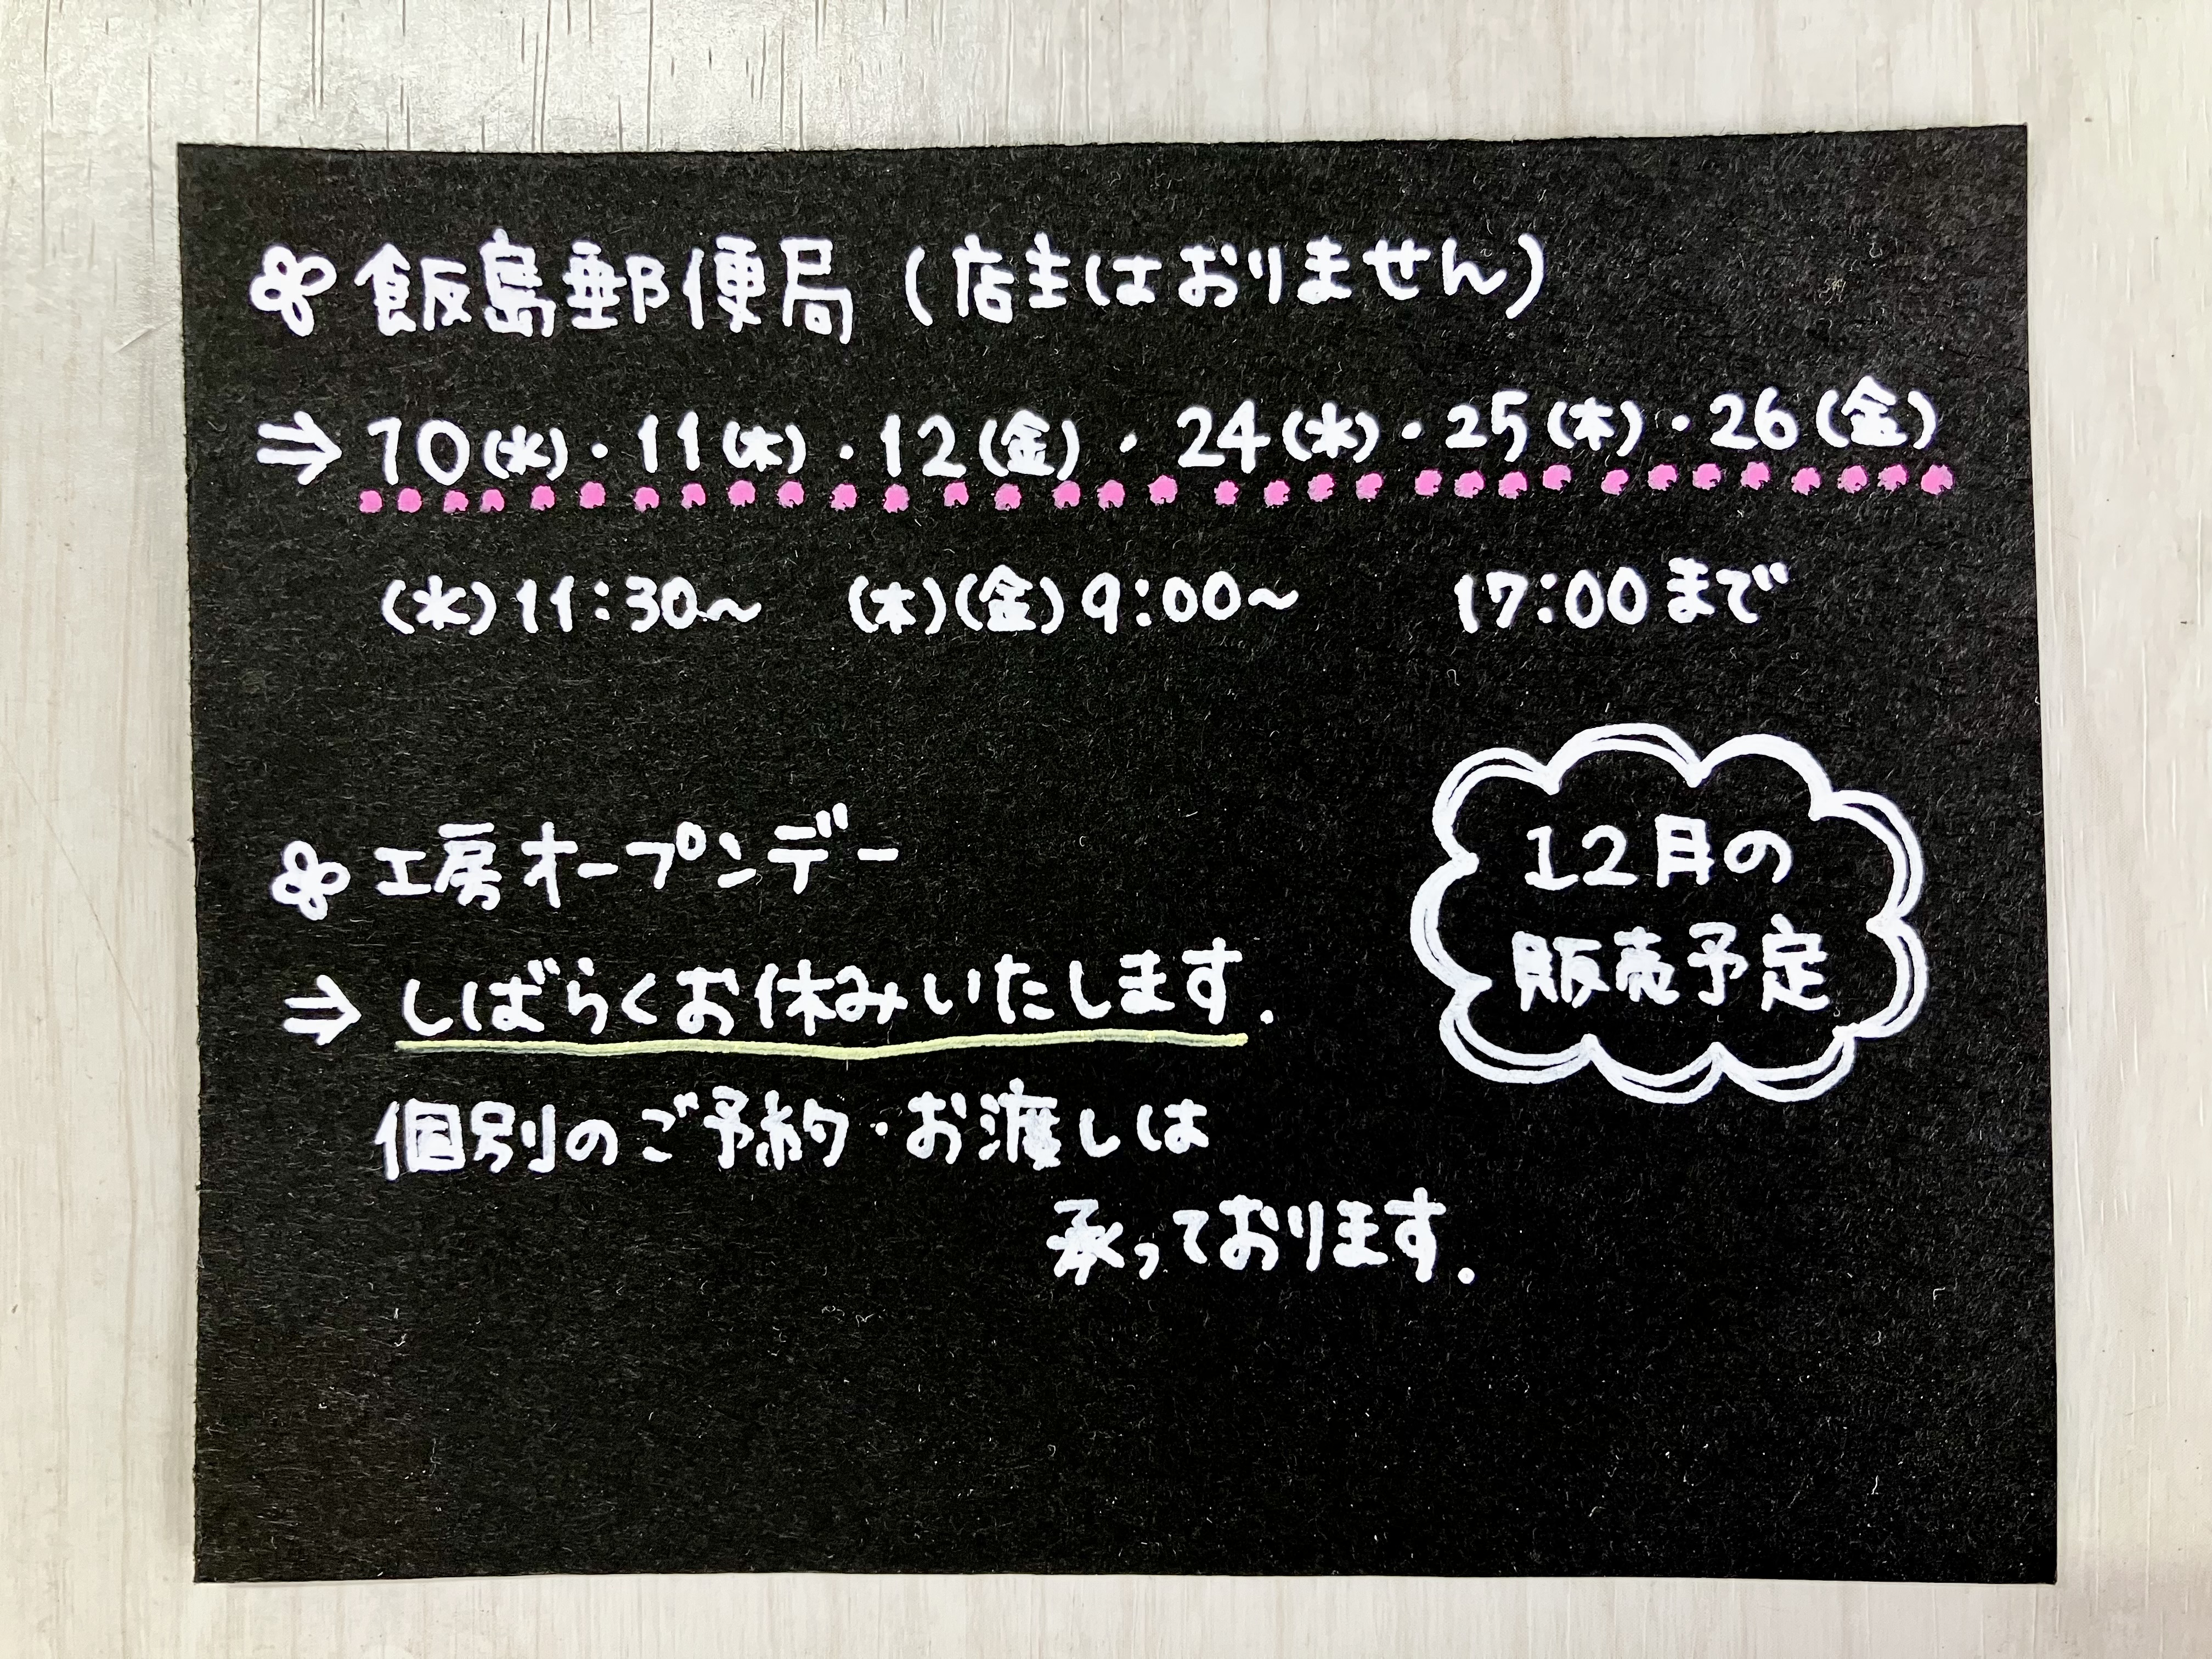 飯島郵便局(店主はおりません)
⇒10(水)・11(木)・12(金)・24(水)・25(木)・26(金)
(水)11:30〜 (木)(金)9:00〜 17:00まで
工房オープンデー
⇒しばらくお休みいたします.
個別のご予約・お渡しは
承っております.
12月の
販売予定